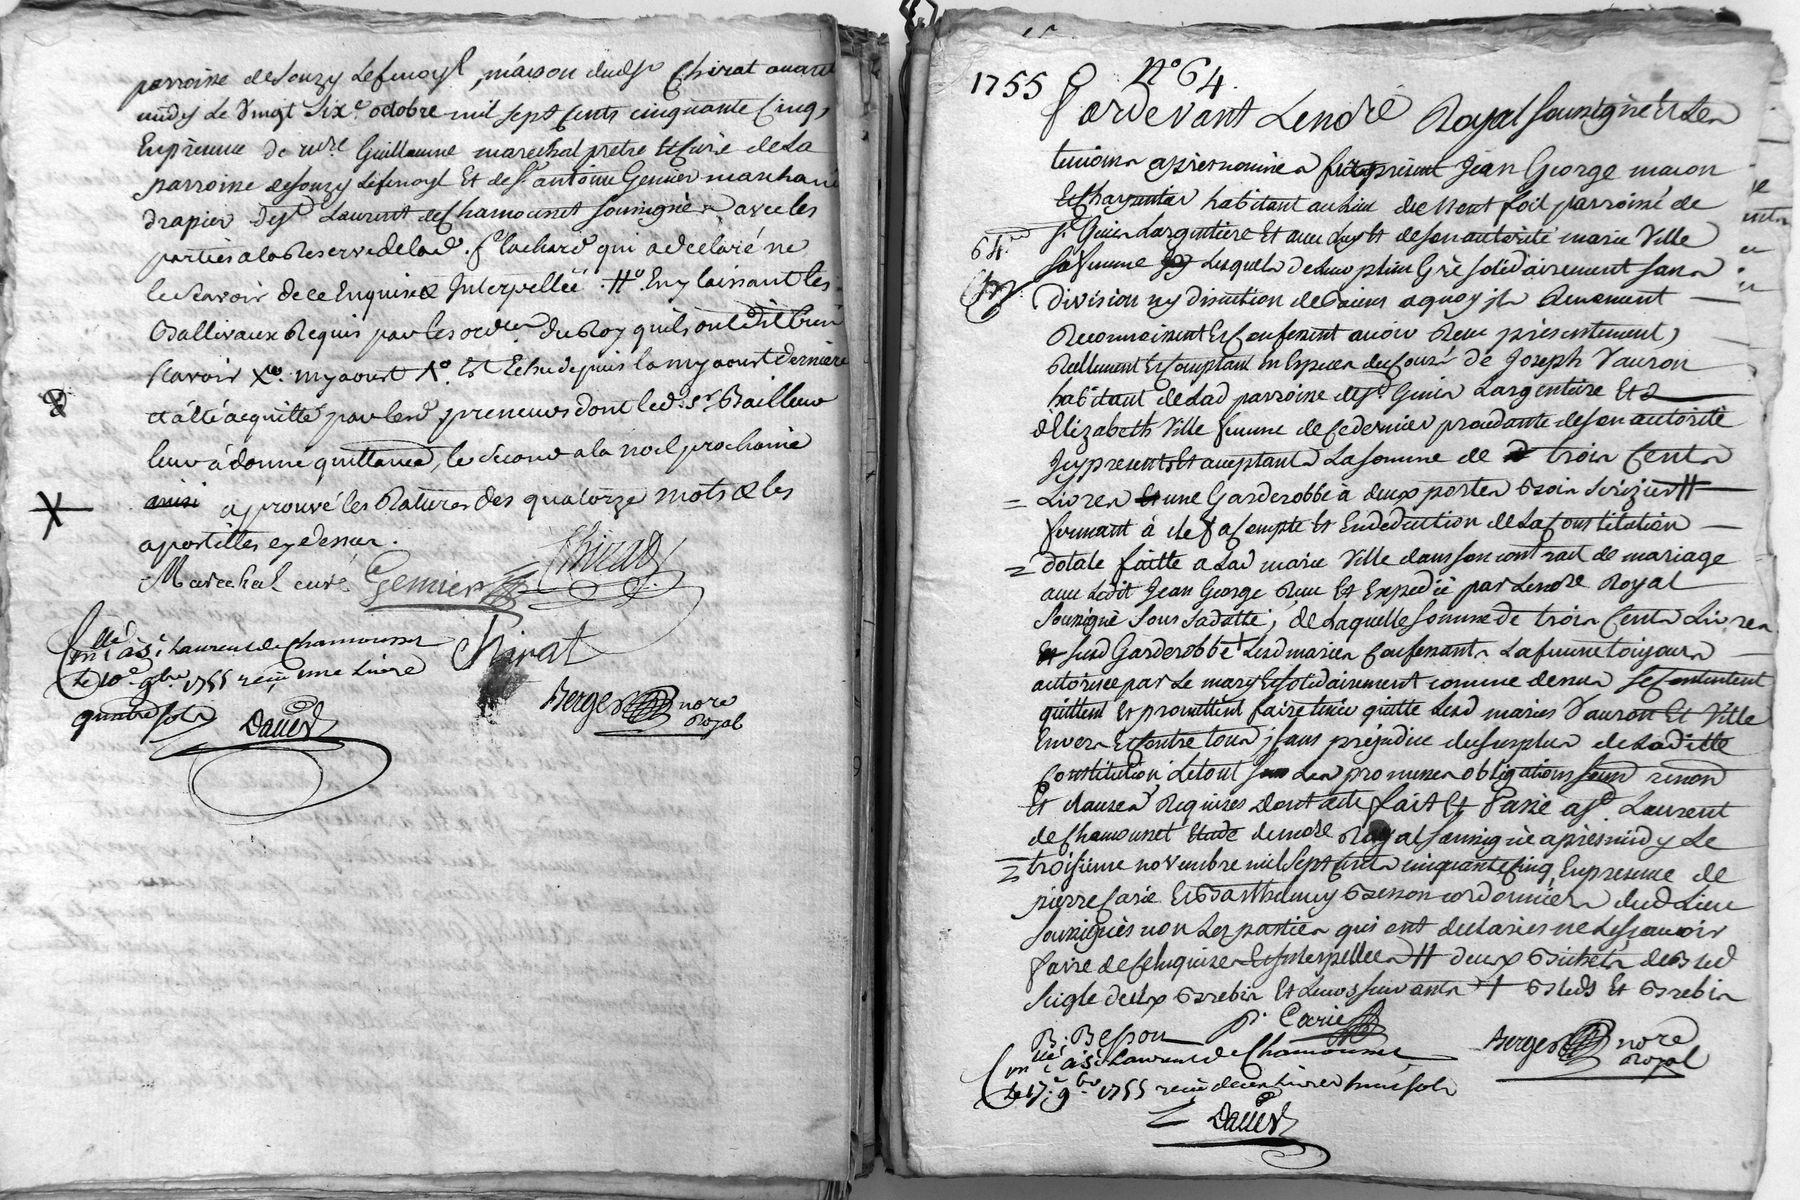 parroisse de Souzy Lefenoyl, maison dudsr Chirat avant
midy le vingt six.e octobre mil sept cents cinquante cinq,
En presence de mre Guillaume marechal pretre et Curé de la
parroisse de Souzy Lefenoyl Et de sr antoine Genier marchand
drapier de st Laurent de Chamousset soussignés avec les
parties a la Reserve de lad. f. lachard qui a declaré ne
le scavoir de ce Enquise & Interpellée. # Eny laissant les
Ballivaux Requis par les ordres du Roy qu'ils ont dit bien
scavoir X. my aoust X. Est Echu depuis la my aoust derniere
et a été acquitté par lesd. preneurs dont led. sr. Bailleur
leur a donné quittance, le second a la noel prochaine
ainsi aprouvé les Ratures des quatorze mots & les
apostilles cy dessus.
Marechal curé Genier Chirat
Chirat
Cm lé a st Laurent de Chamousset
Le 10e 9bre 1755 recu une Livre
quatre sols
Daver
Berger nore
Royal
1755 No 64.
Pardevant Lenore Royal soussigné Et Les
temoins apres nommés fut present Jean George macon
et Charpentier habitant au lieu de parroisse de
St. Genis Largentiere Et avec luy Et de son autorité marie Ville
64.e
sa femme Lesquels de leur plein Gré solidairement sans
division ny discution de biens a quoy ils Renoncent
Reconnoissent Et Confessent avoir Recu presentement,
Reellement Et Comptant en Especes de Cours de Joseph Vauron
habitant de lad parroisse de st. Genis Largentiere Et d
d'Elizabeth Ville femme de ce dernier procedante de son autorité
Icy presents Et acceptants La somme de trois Cents
= Livres Et une Garderobbe à deux portes bois serizier #
fermant à clef a Compte Et En deduction de la Constitution
= dotale faitte a lad marie Ville dans son contrait de mariage
avec Ledit Jean George Recu Et Expedié par Lenore Royal
soussigné sous sa datte; de Laquelle somme de trois Cents Livres
Et susd Garderobbe + Lesd mariés Confessants La femme toujours
autorisée par Le mary Et solidairement comme dessus se Contentent
quittent Et promettent faire tenir quitte Lesd mariés Vauron Et Ville
Envers Et Contre tous, sans prejudice du surplus de Laditte
Constitution Le tout sous Les promesses obligations renon
Et clauses Requises Dont acte fait Et Passé a st Laurent
de Chamousset Etude de nore Royal soussigné apres midy Le
= troisieme novembre mil sept Cents cinquante Cinq, En presence de
pierre Carié Et Barthelemy Besson cordonniers dud Lieu
soussignés non Les parties qui ont declarés ne Le scavoir
faire de ce Enquises Et Interpellées # deux Bichets de Bled
seigle deux Brebis Et Leurs suivants + Bleds Et Brebis
B: Besson P. Carié
Berger nore
Royal
Cm lé a st Laurent de Chamousset
Le 17e 9bre 1755 recu deux Livres huit sols
Daver